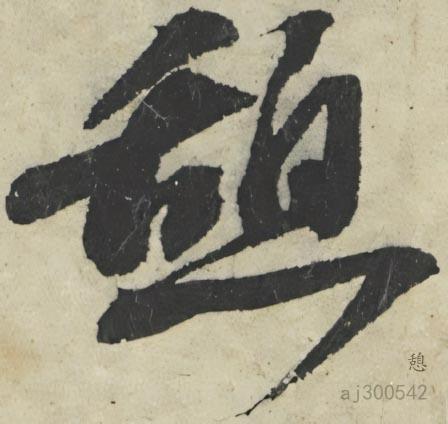 憩
憩
aj300542